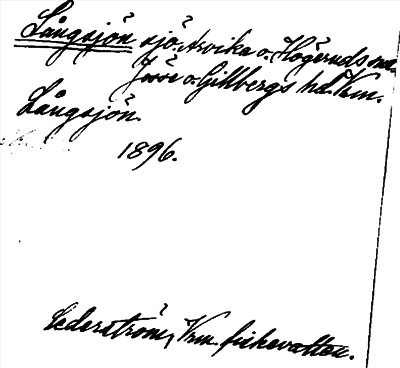 Långsjön sjö. Arvika o. Högeruds snr
Jösse o. Gillbergs hd. Vrm.
Långsjön.
1896.
Cederström, Vrm. fiskevatten.